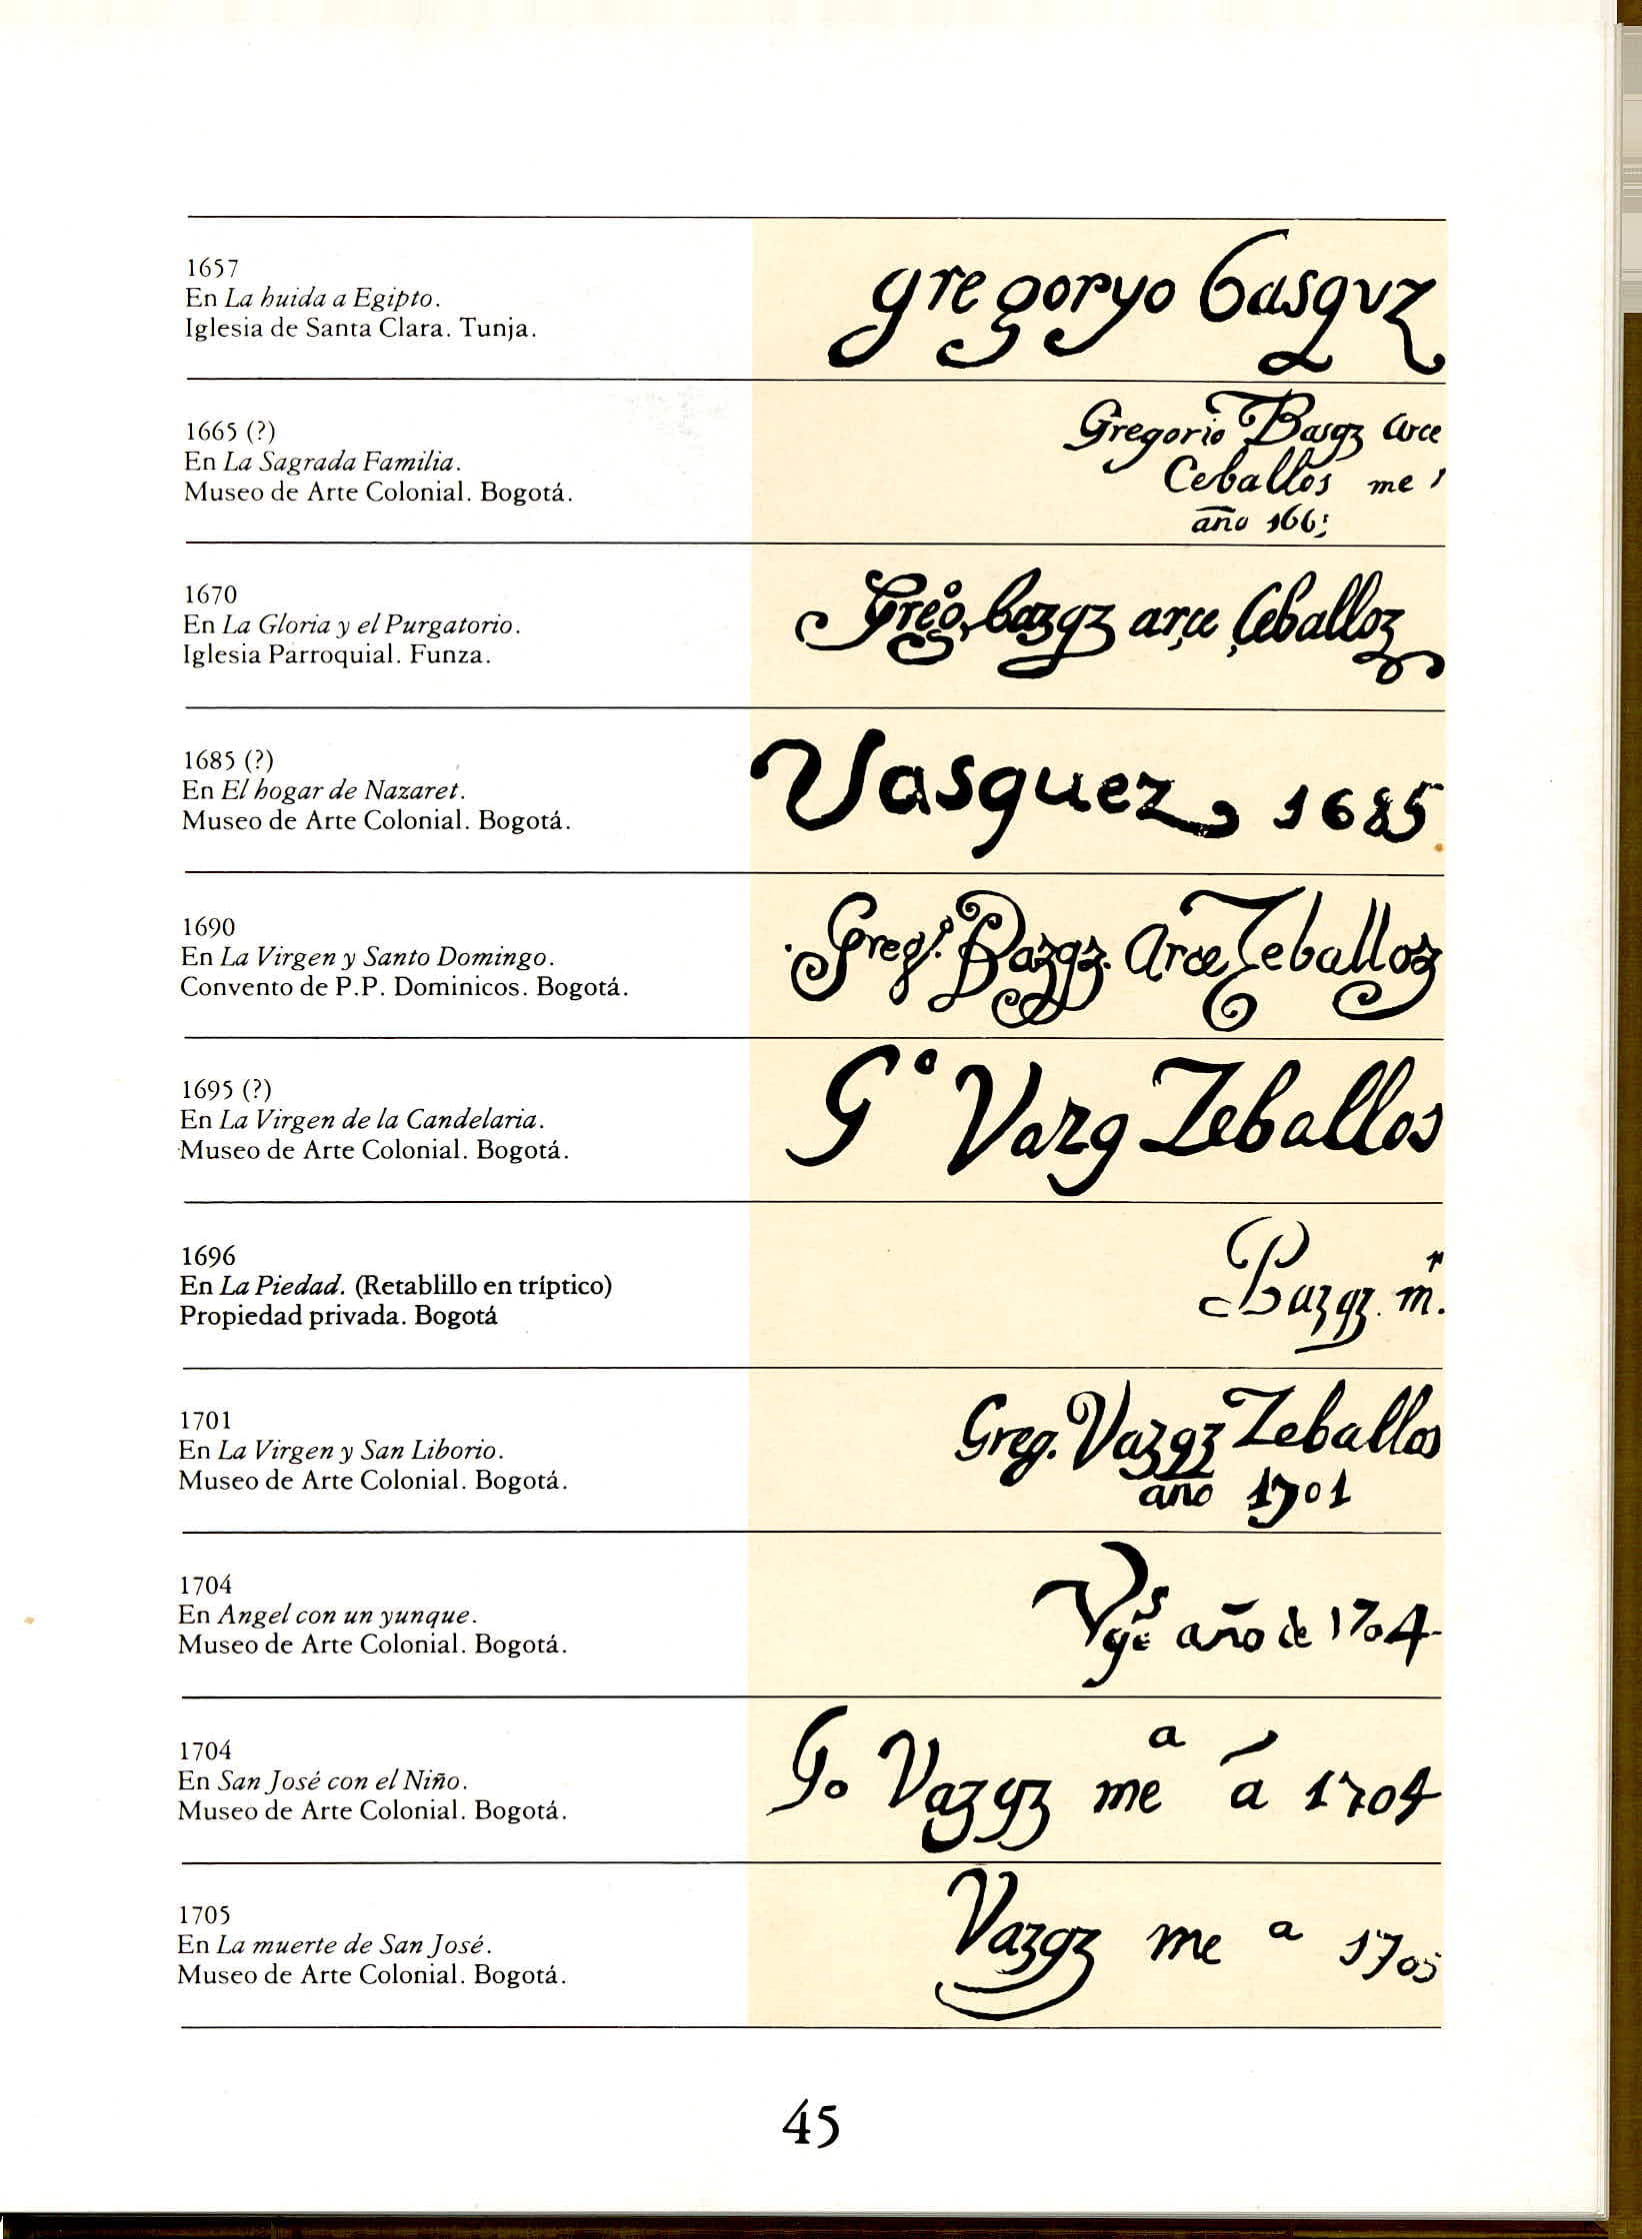 1657
En La huida a Egipto.
Iglesia de Santa Clara. Tunja.
gregoryo basquz
1665 (?)
En La Sagrada Familia.
Museo de Arte Colonial. Bogotá.
Gregorio Basqz Arce
Ceballos me
año 166
1670
En La Gloria y el Purgatorio.
Iglesia Parroquial. Funza.
Grego, bazqz arçe Çeballoz
1685 (?)
En El hogar de Nazaret.
Museo de Arte Colonial. Bogotá.
Vasquez 1685
1690
En La Virgen y Santo Domingo.
Convento de P.P. Dominicos. Bogotá.
Grego. Bazqz. Arce Zeballoz
1695 (?)
En La Virgen de la Candelaria.
Museo de Arte Colonial. Bogotá.
Gº Vazq Zeballos
1696
En La Piedad. (Retablillo en tríptico)
Propiedad privada. Bogotá
Bazqz. m.
1701
En La Virgen y San Liborio.
Museo de Arte Colonial. Bogotá.
Greg. Vazqz Zeballos
año 1701
1704
En Angel con un yunque.
Museo de Arte Colonial. Bogotá.
año de 1704
1704
En San José con el Niño.
Museo de Arte Colonial. Bogotá.
Go Vazqz me a á 1704
1705
En La muerte de San José.
Museo de Arte Colonial. Bogotá.
Vazqz me a 1705
45